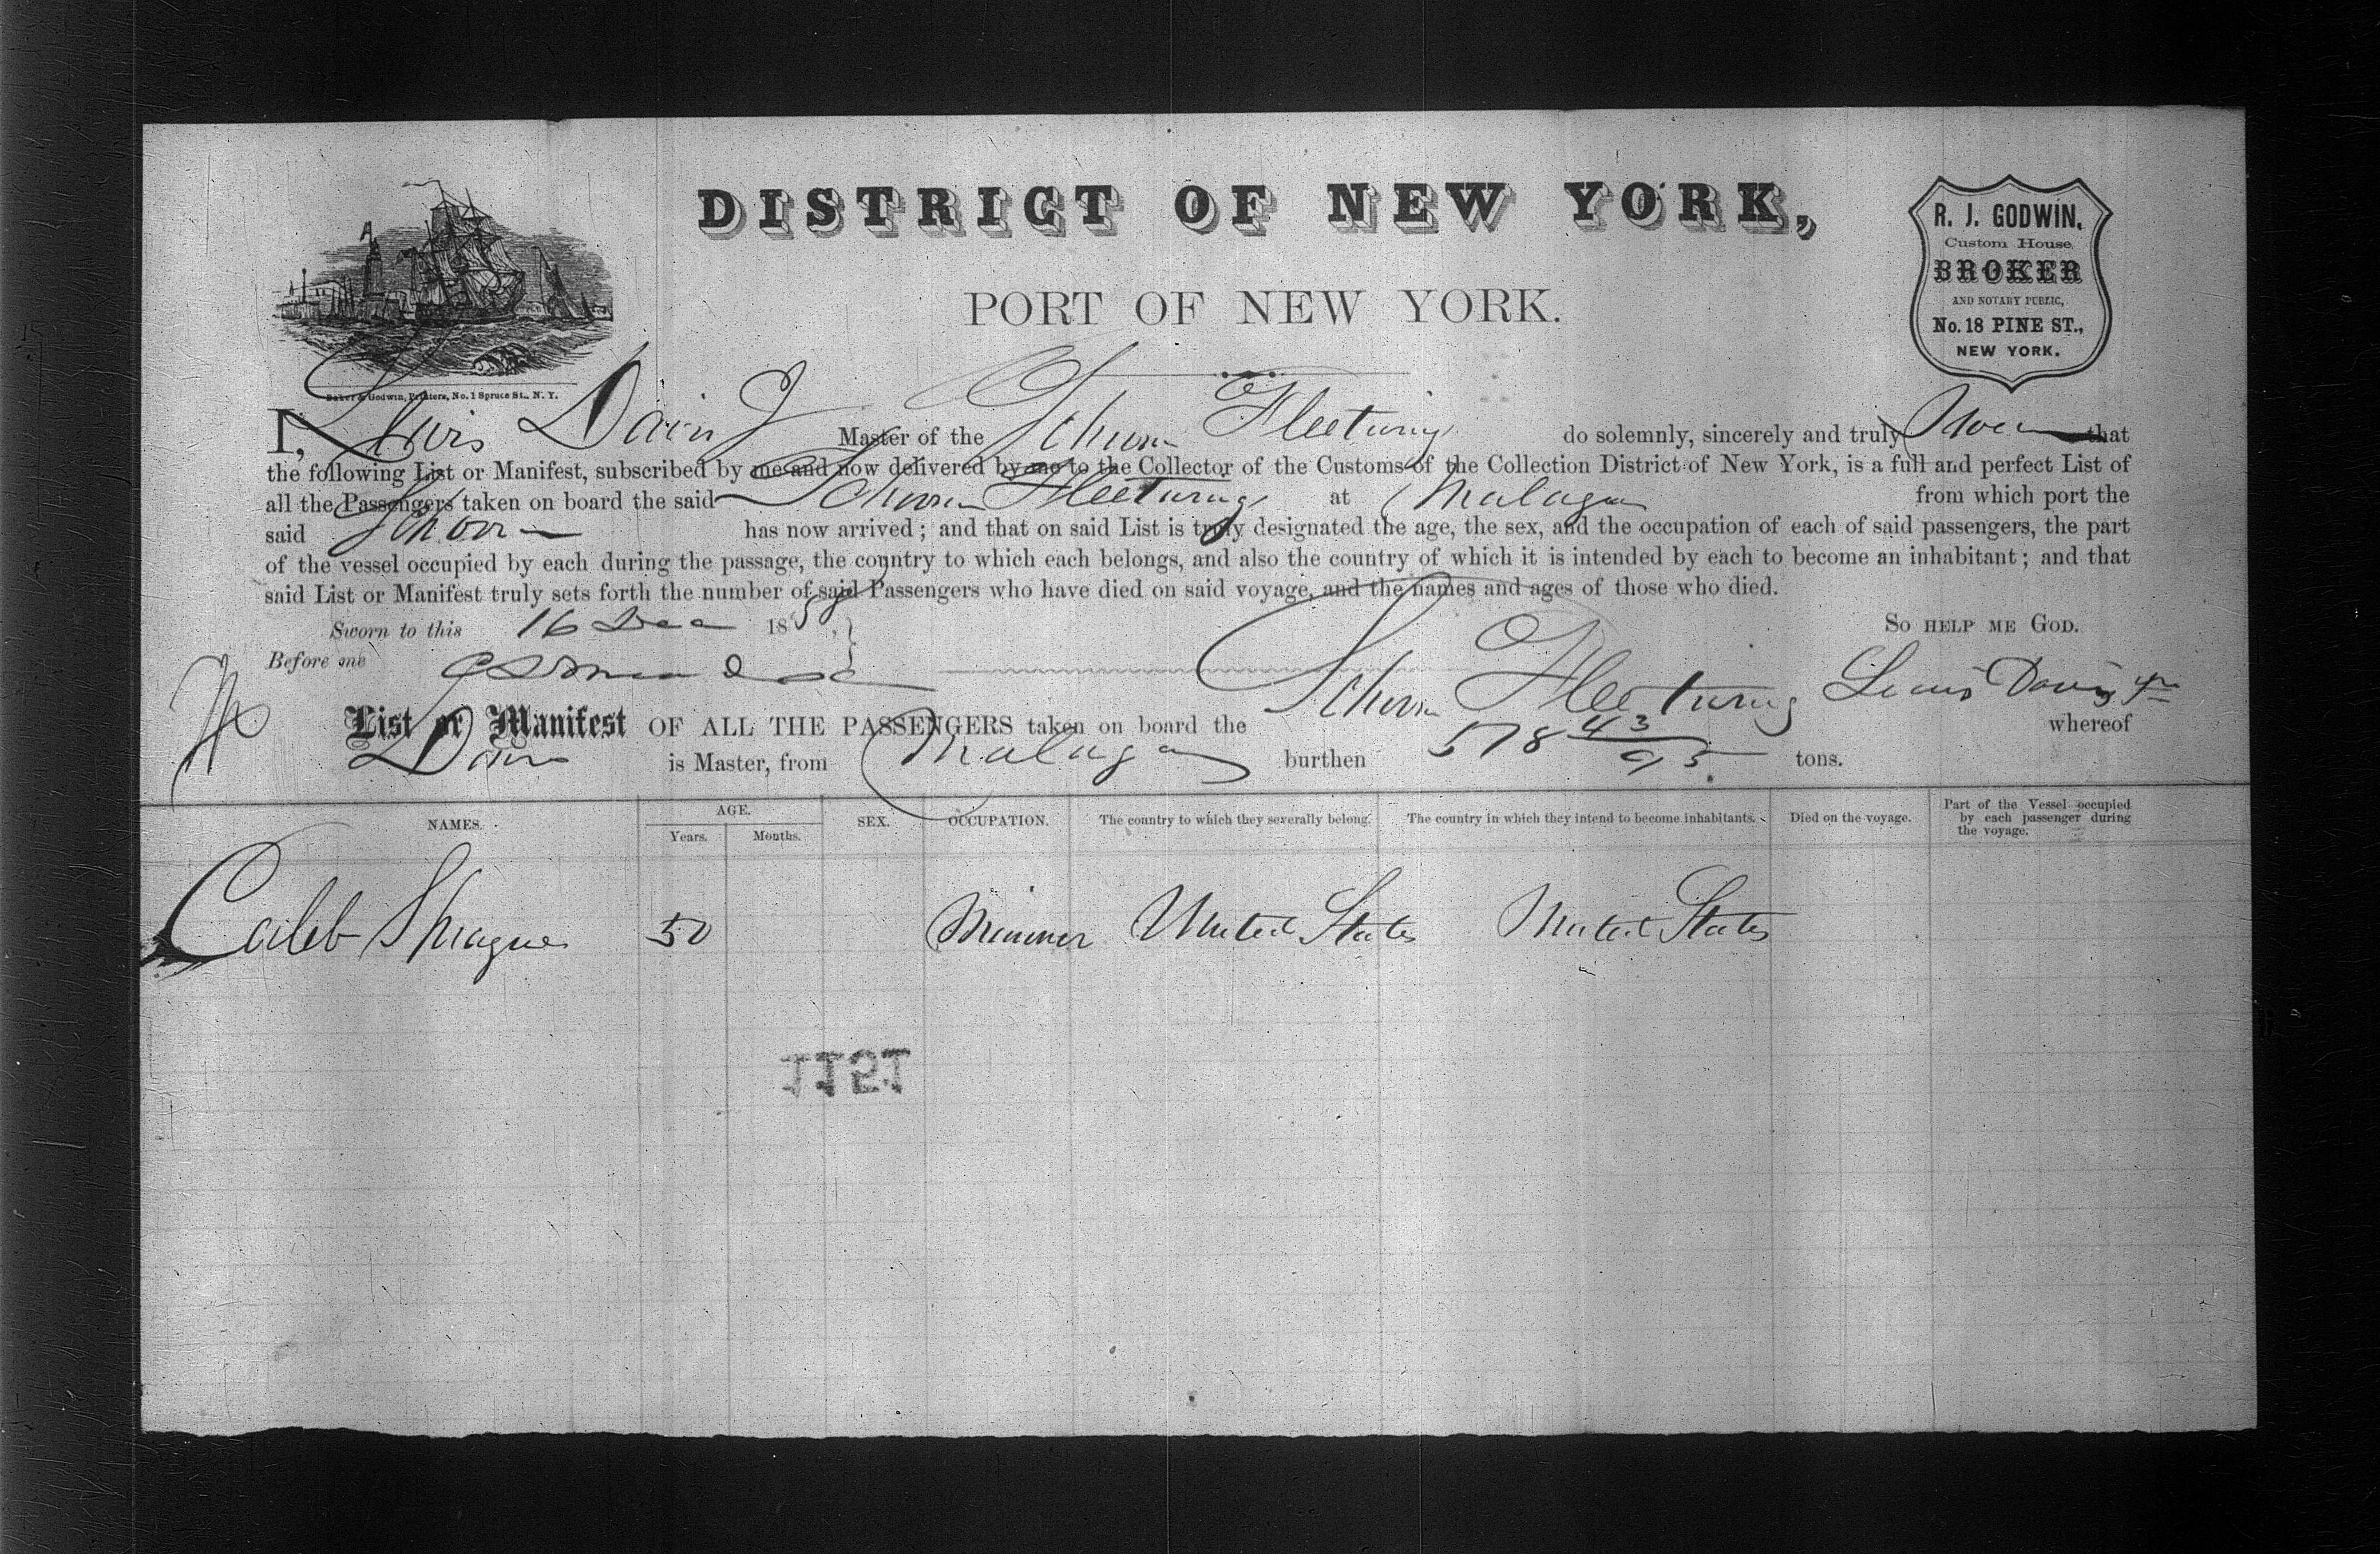 DISTRICT OF NEW YORK,
PORT OF NEW YORK.
R. J. GODWIN,
Custom House
BROKER
AND NOTARY PUBLIC,
No. 18 PINE ST.,
NEW YORK.
Baker & Godwin, Printers, No. 1 Spruce St., N. Y.
I, Lewis Davis Jr Master of the Schooner Fleetwing do solemnly, sincerely and truly Swear that
the following List or Manifest, subscribed by me and now delivered by me to the Collector of the Customs of the Collection District of New York, is a full and perfect List of
all the Passengers taken on board the said Schooner Fleetwing at Malaga from which port the
said Schoor has now arrived; and that on said List is truly designated the age, the sex, and the occupation of each of said passengers, the part
of the vessel occupied by each during the passage, the country to which each belongs, and also the country of which it is intended by each to become an inhabitant; and that
said List or Manifest truly sets forth the number of said Passengers who have died on said voyage, and the names and ages of those who died.
Sworn to this 16 Dec 1858, So HELP ME GOD.
Before me
Lewis Davis Jr
List or Manifest OF ALL THE PASSENGERS taken on board the Schoon Fleetwing whereof
Davis is Master, from Malaga burthen 578 43/95 tons.
NAMES. AGE. Years. Months. SEX. OCCUPATION. The country to which they severally belong. The country in which they intend to become inhabitants. Died on the voyage. Part of the Vessel occupied by each passenger during the voyage.
Caleb Sprague 50 Mariner United States United States
1151